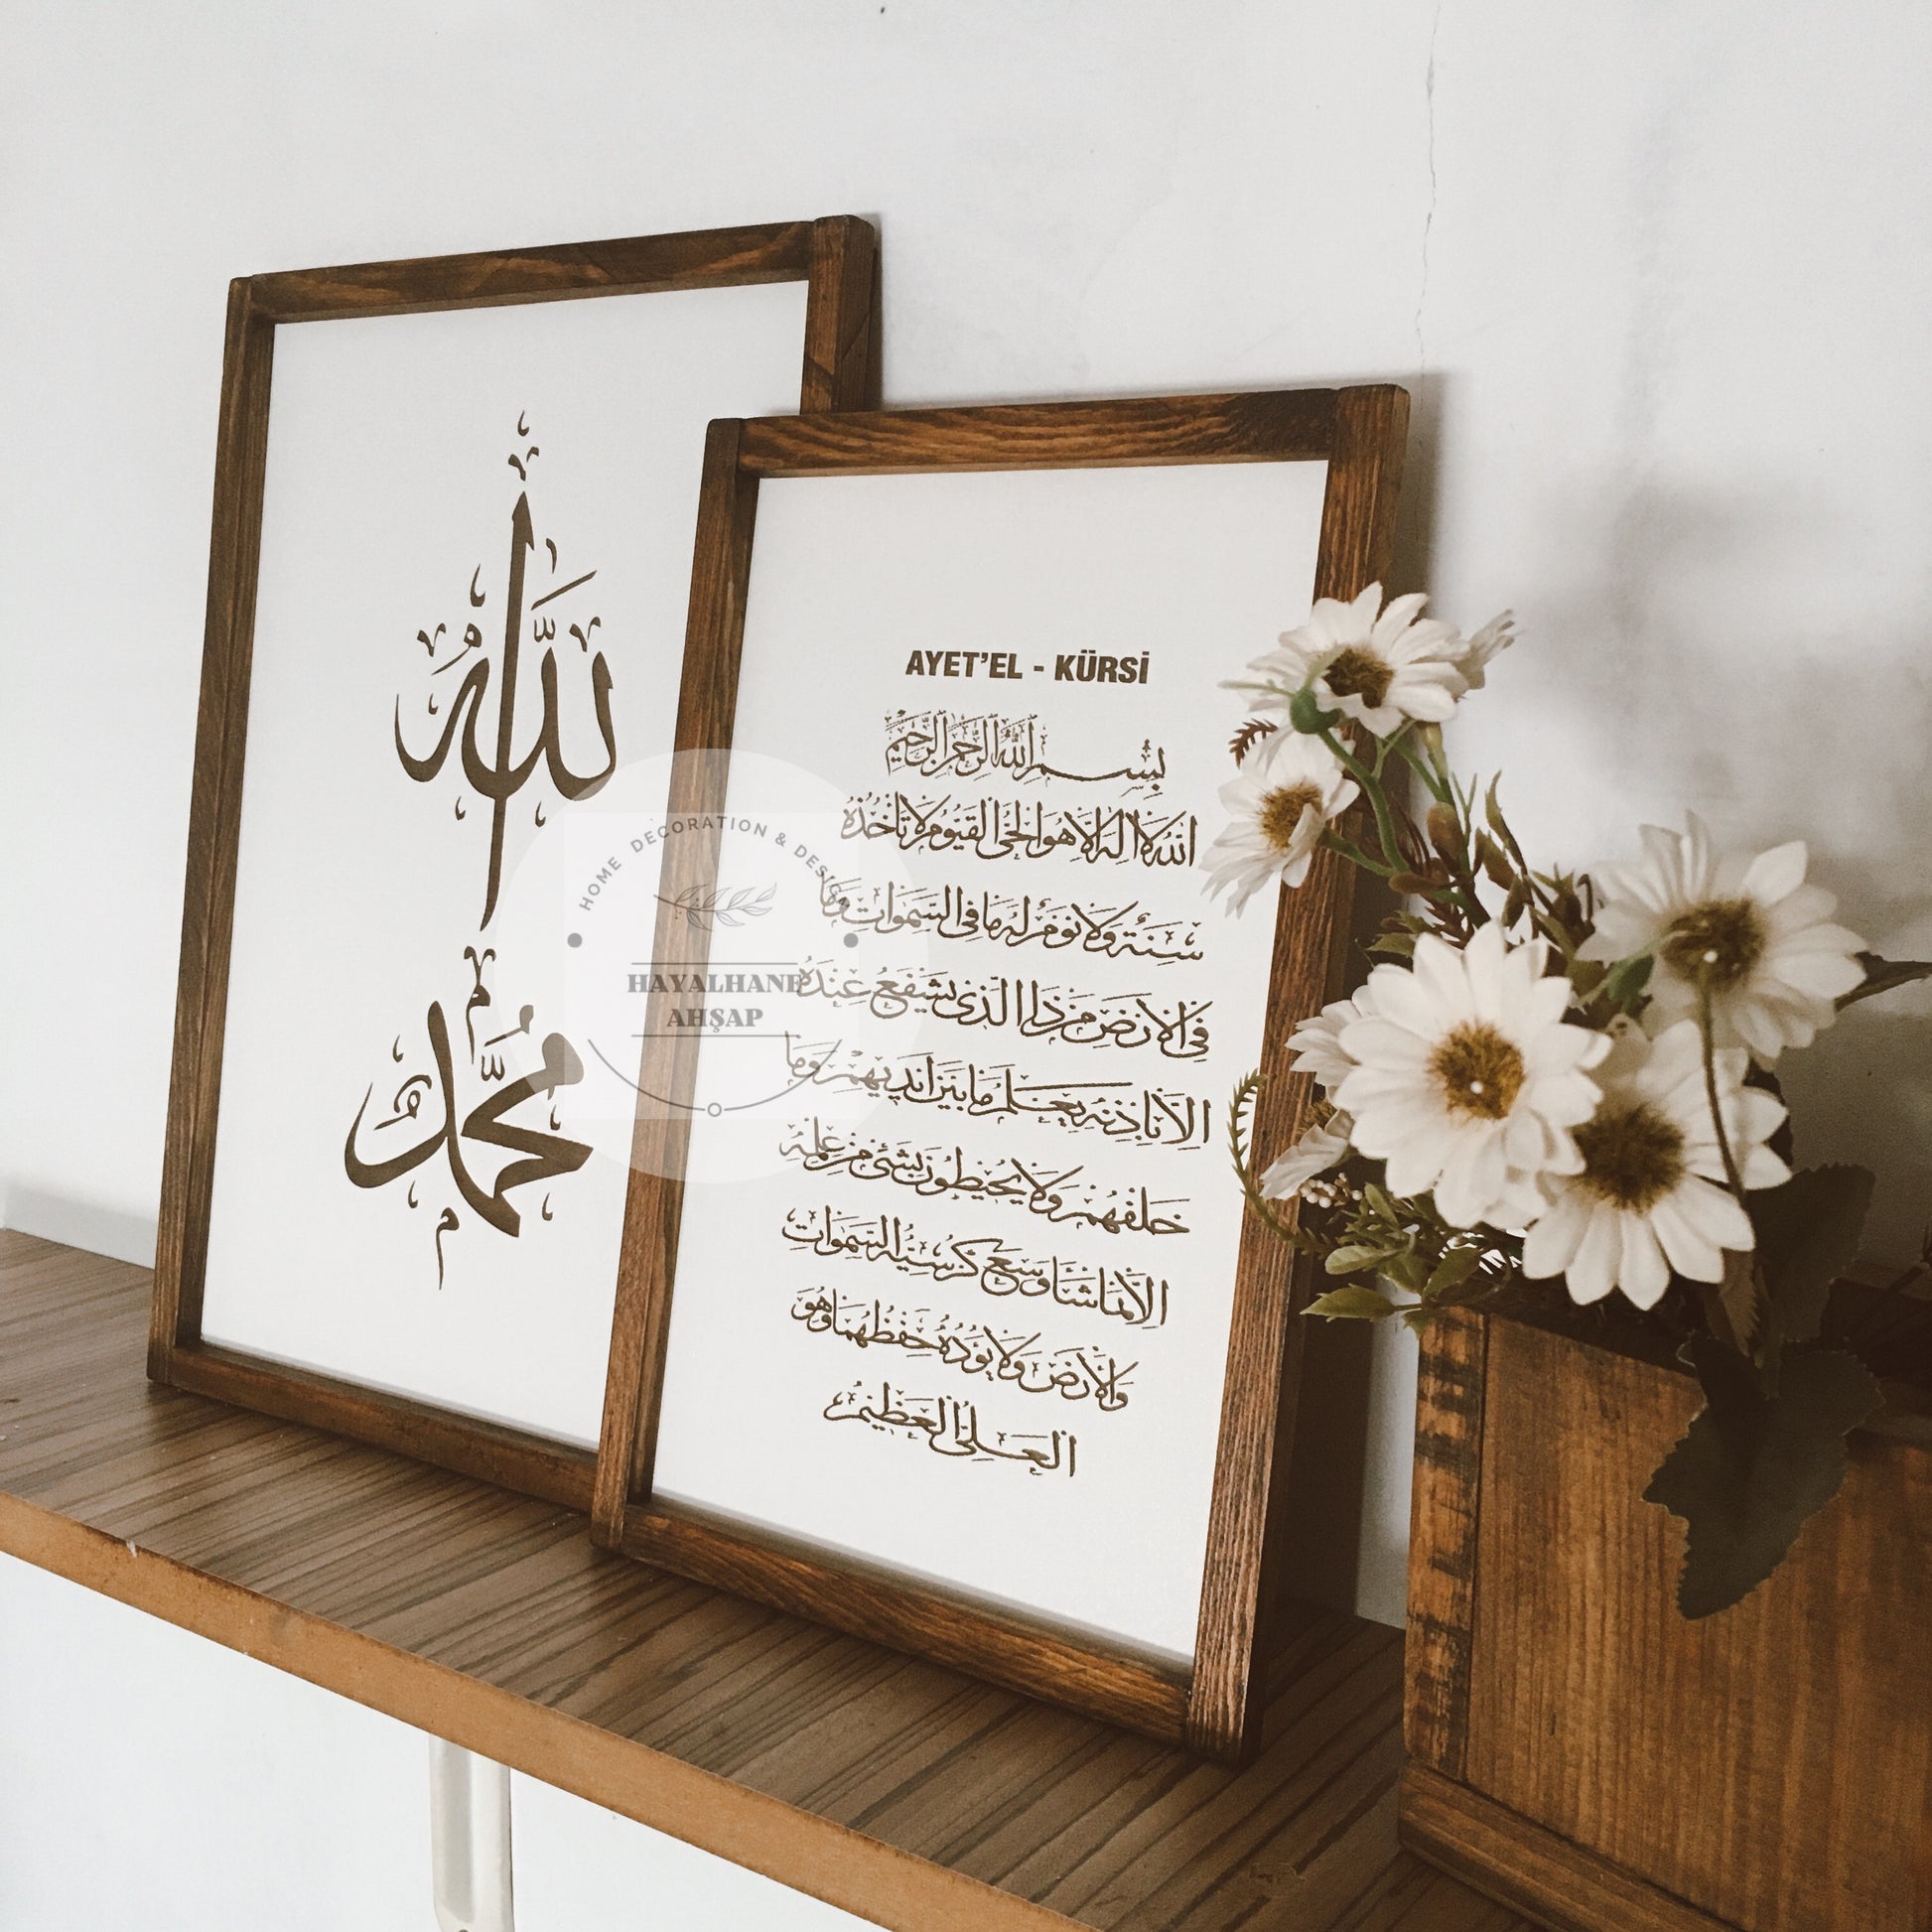 الله
محمد
AYET'EL - KÜRSİ
بِسْمِ اللهِ الرَّحْمٰنِ الرَّحِيمِ
اَللهُ لَا اِلٰهَ اِلَّا هُوَ الْحَىُّ الْقَيُّومُ لَا تَأْخُذُهُ
سِنَةٌ وَلَا نَوْمٌ لَهُ مَا فِى السَّمٰوَاتِ وَمَا
فِى الْاَرْضِ مَنْ ذَا الَّذِى يَشْفَعُ عِنْدَهُ
اِلَّا بِاِذْنِهِ يَعْلَمُ مَا بَيْنَ اَيْدِيهِمْ وَمَا
خَلْفَهُمْ وَلَا يُحِيطُونَ بِشَىْءٍ مِنْ عِلْمِهِ
اِلَّا بِمَا شَاءَ وَسِعَ كُرْسِيُّهُ السَّمٰوَاتِ
وَالْاَرْضَ وَلَا يَؤُدُهُ حِفْظُهُمَا وَهُوَ
الْعَلِىُّ الْعَظِيمُ
HOME DECORATION & DESIGN
HAYALHANE
AHŞAP